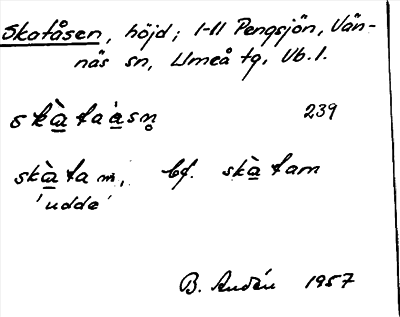 Skatåsen, höjd; 1-11 Pengsjön, Vän-
näs sn, Umeå tg, Vb. l.
skà̲ta`a̲sn̥ 239
skà̲ta m, bf. skà̲tam
'udde'
B. 1957